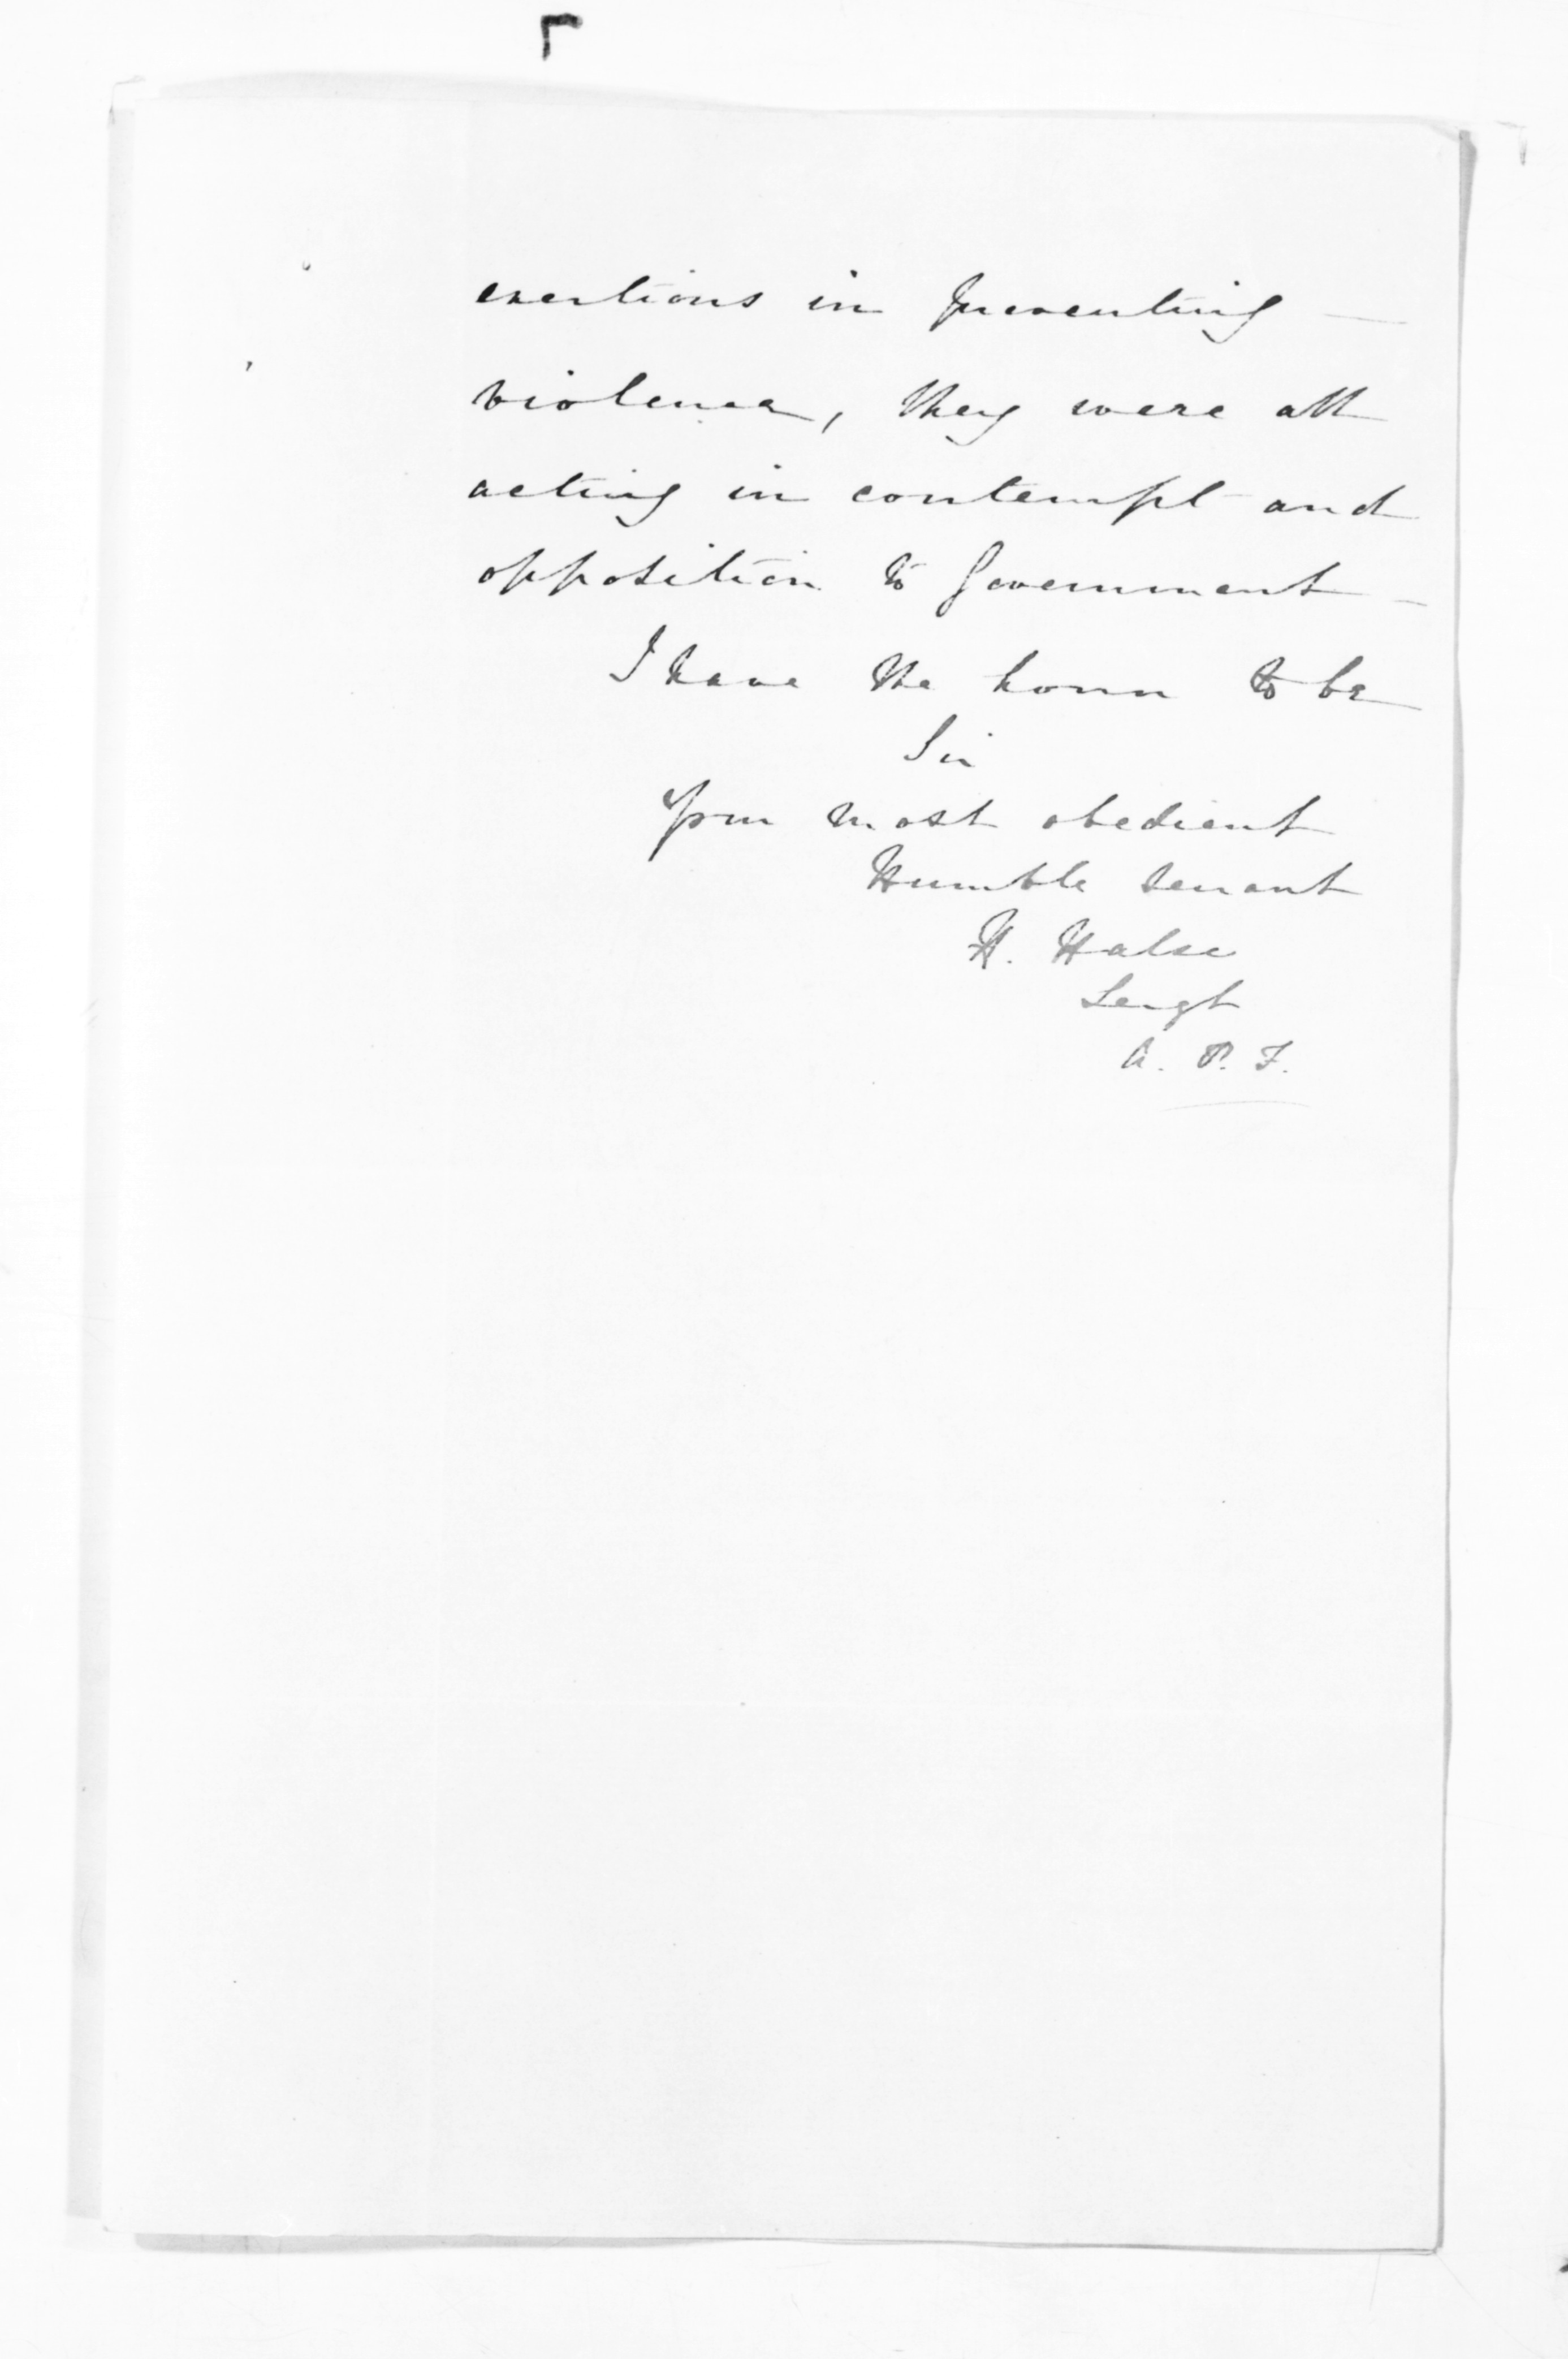 exertions in preventing —
violence, they were all
acting in contempt and
opposition to Government —
I have the honor to be
Sir
Your most obedient
Humble servant
H. Halse
Sergt
A. P. F.